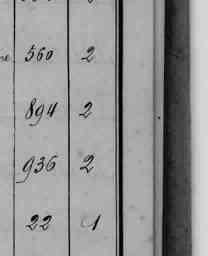 560 2
894 2
936 2
22 1